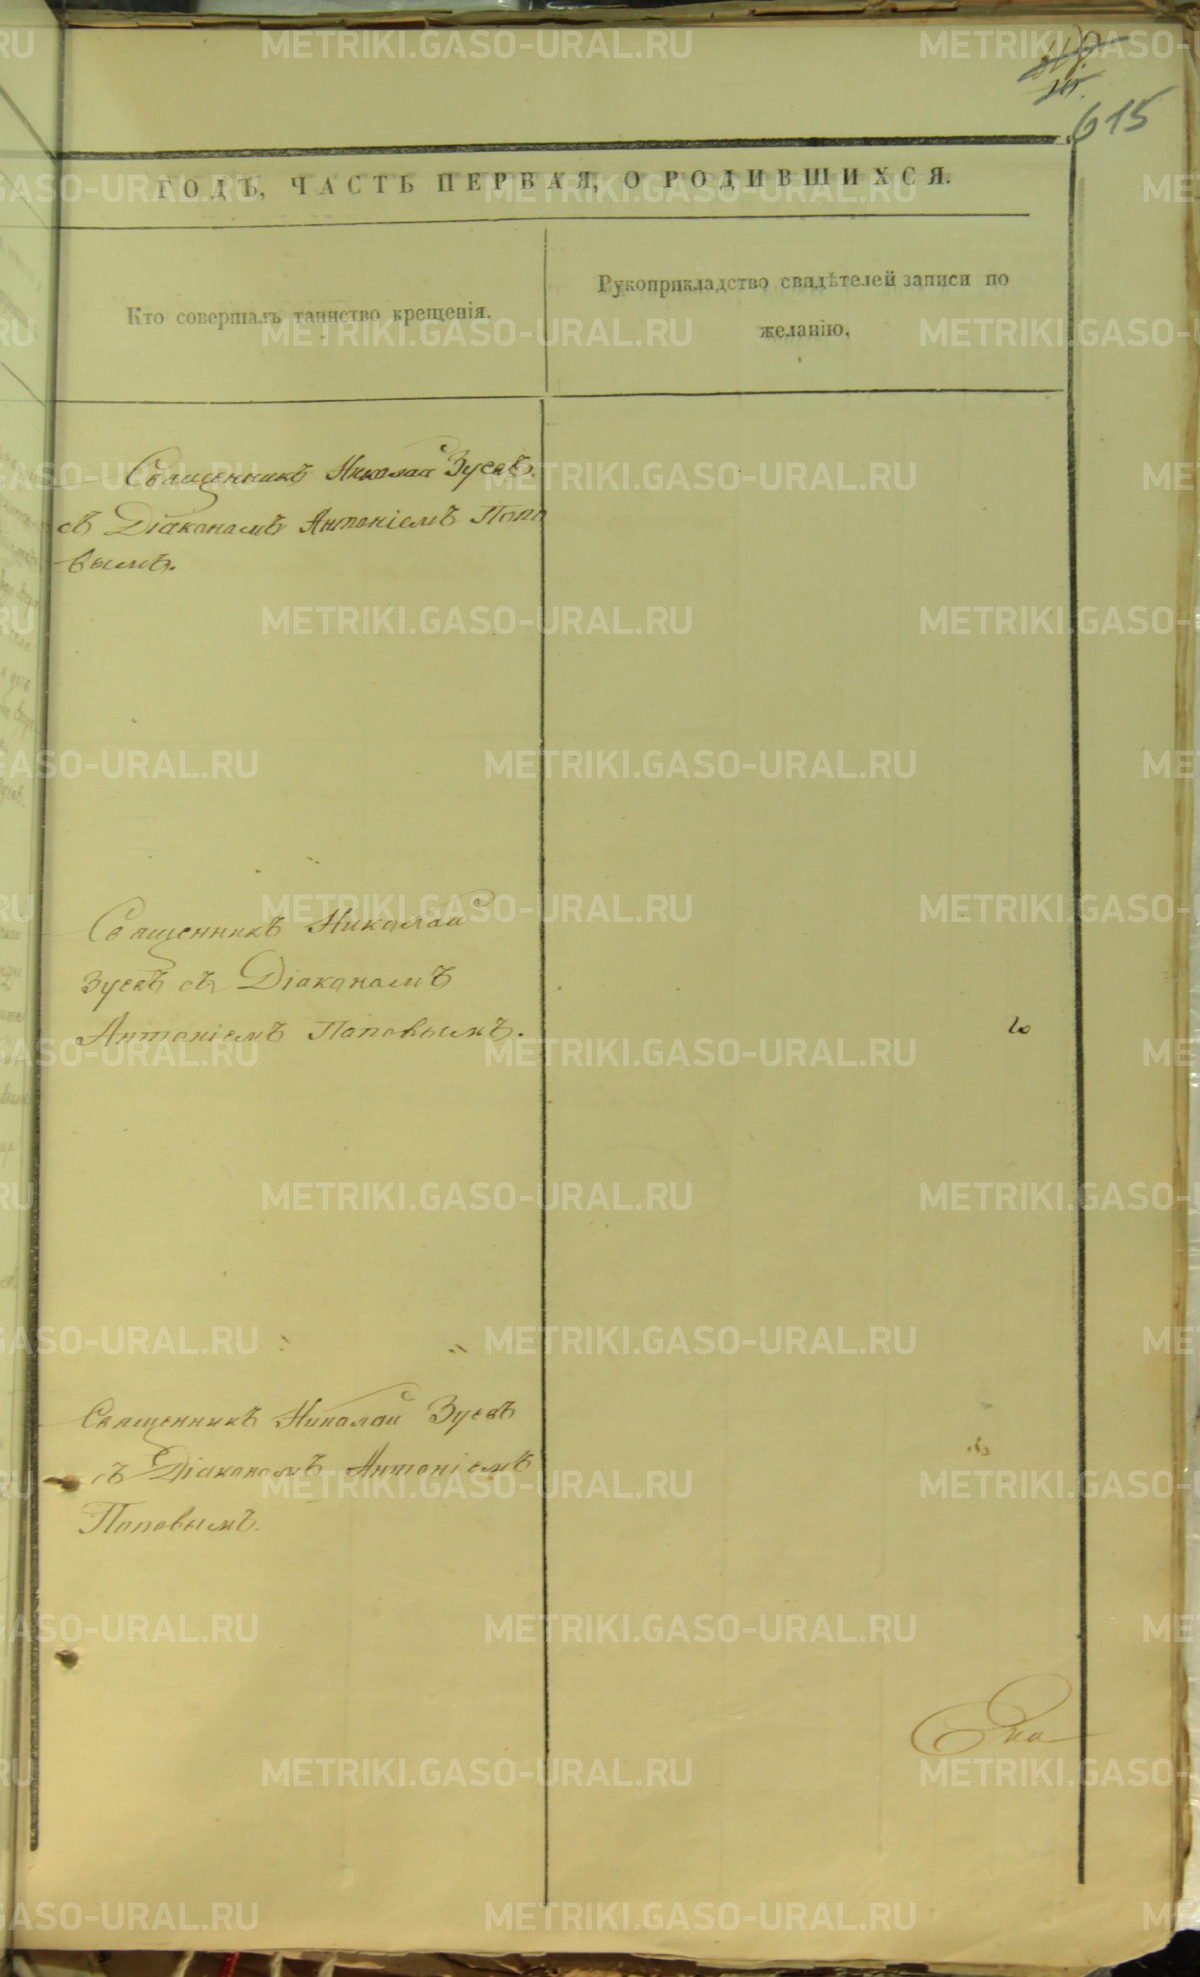 615
ГОДЪ, ЧАСТЬ ПЕРВАЯ, О РОДИВШИХСЯ.
Кто совершалъ таинство крещенія.
Рукоприкладство свидѣтелей записи по
желанію.
Священникъ Николай Зуевъ
съ Діакономъ Антоніемъ Попо
вымъ.
Священникъ Николай
Зуевъ съ Діакономъ
Антоніемъ Поповымъ.
Священникъ Николай Зуевъ
съ Діакономъ Антоніемъ
Поповымъ.
METRIKI.GASO-URAL.RU